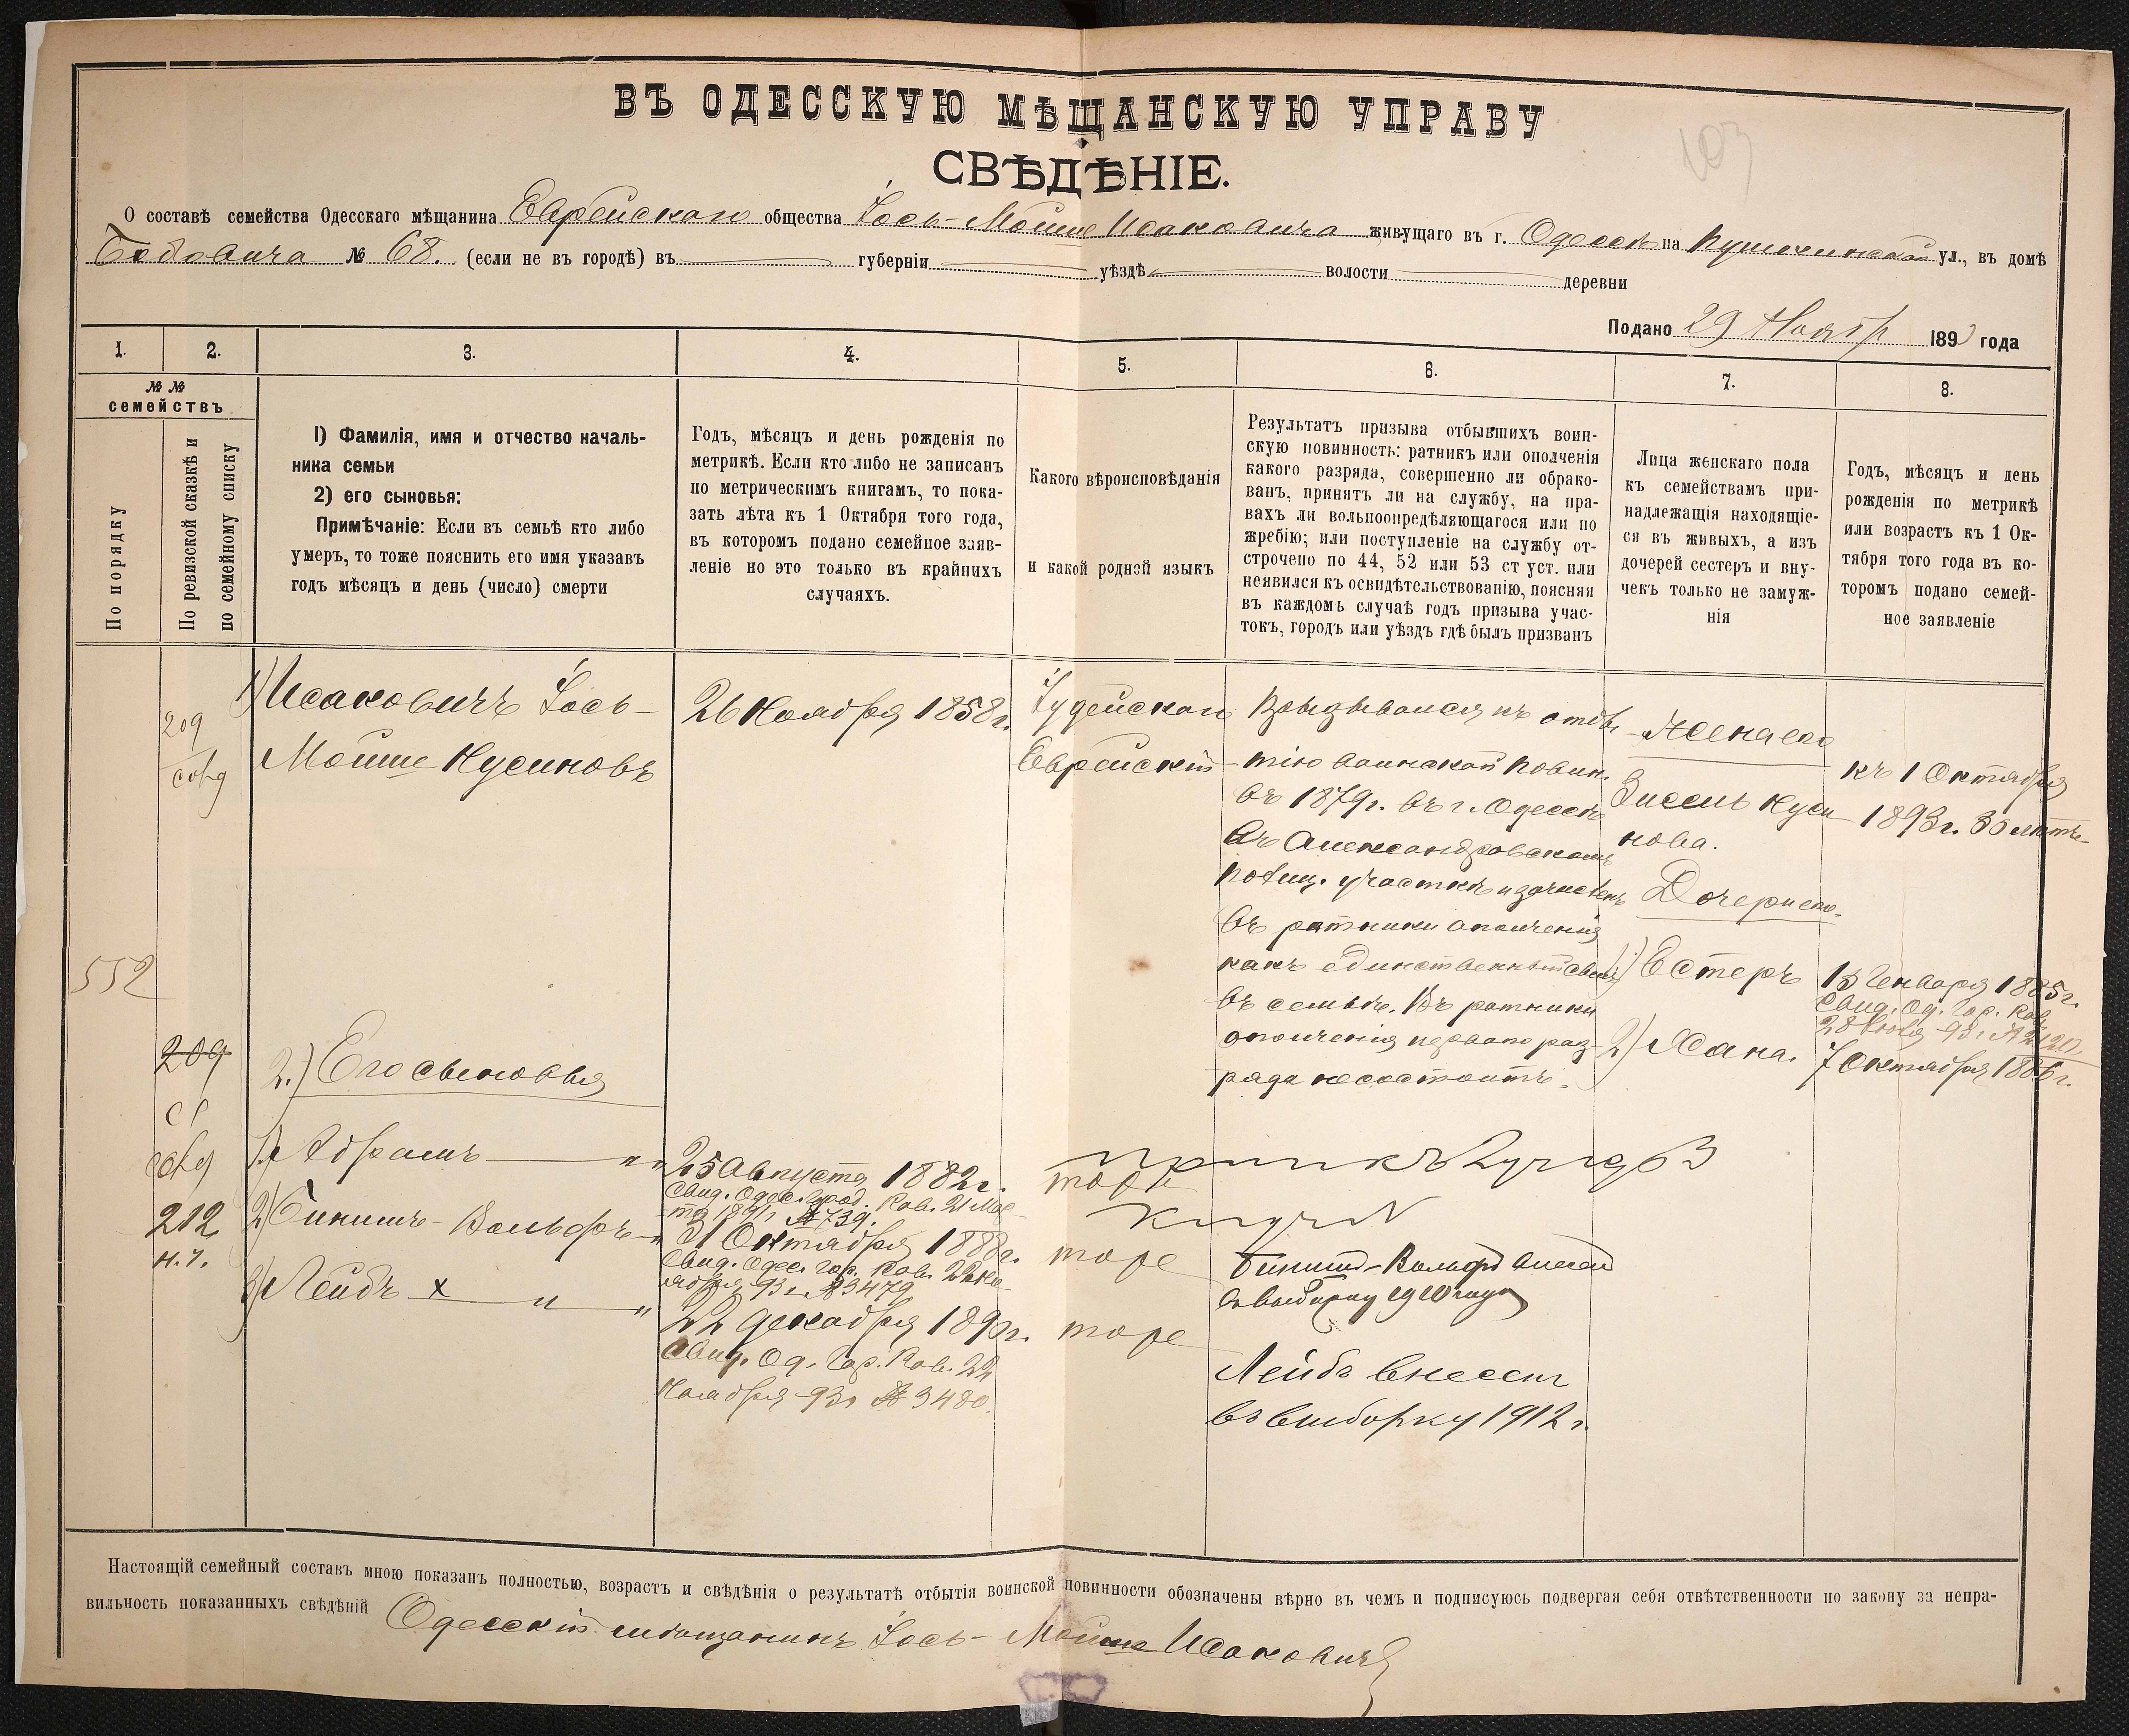 103
ВЪ ОДЕССКУЮ МѢЩАНСКУЮ УПРАВУ
СВѢДѢНІЕ.
О составѣ семейства Одесскаго мѣщанина Еврейскаго общества Іось-Мойше Исаковича живущаго въ г. Одессѣ на Пушкинской ул., въ домѣ
Бабовича № 68. (если не въ городѣ) въ губерніи уѣздѣ волости деревни
Подано 29 Ноябр 1893 года
1. 2. 3. 4. 5. 6. 7. 8.
№ № семействъ
По порядку
По ревизской сказкѣ и
по семейному списку
1) Фамилія, имя и отчество началь-
ника семьи
2) его сыновья:
Примѣчаніе: Если въ семьѣ кто либо
умеръ, то тоже пояснить его имя указавъ
годъ мѣсяцъ и день (число) смерти
Годъ, мѣсяцъ и день рожденія по
метрикѣ. Если кто либо не записанъ
по метрическимъ книгамъ, то пока-
зать лѣта къ 1 Октября того года,
въ которомъ подано семейное заяв-
леніе но это только въ крайнихъ
случаяхъ.
Какого вѣроисповѣданія
и какой родной языкъ
Результатъ призыва отбывшихъ воин-
скую повинность: ратникъ или ополченія
какого разряда, совершенно ли обрако-
ванъ, принятъ ли на службу, на пра-
вахъ ли вольноопредѣляющагося или по
жребію; или поступленіе на службу от-
строчено по 44, 52 или 53 ст уст. или
неявился къ освидѣтельствованію, поясняя
въ каждомъ случаѣ годъ призыва учас-
токъ, городъ или уѣздъ гдѣ былъ призванъ
Лица женскаго пола
къ семействамъ при-
надлежащія находящіе-
ся въ живыхъ, а изъ
дочерей сестеръ и вну-
чекъ только не замуж-
нія
Годъ, мѣсяцъ и день
рожденія по метрикѣ
или возрастъ къ 1 Ок-
тября того года въ ко-
торомъ подано семей-
ное заявленіе
209
552
209
212
н. г.
1) Исаковичъ Іось-
Мойше Нусиновъ
2.) Его сыновья
1) Абрамъ " "
2) Бинишъ-Вольфъ "
3) Лейбъ x " "
26 Ноября 1858 г.
25 Августа 1882 г.
Свид. Одес. Город. Рав. 21 Мар-
та 1891 г. № 739.
21 Октября 1888 г.
Свид. Одес. Гор. Рав. 22 Но-
ября 93 г. № 3479
22 Декабря 1890 г.
Свид. Од. Гор. Рав. 22
Ноября 93 г № 3480.
Іудейскаго
Еврейскій
тоже
тоже
тоже
Призывался къ отбы-
тію воинской повин.
въ 1879 г. въ г. Одессѣ
въ Александровскомъ
полиц. участкѣ и зачисленъ
въ ратники ополченія
какъ единственный сынъ
въ семьѣ. Въ ратники
ополченія перваго раз-
ряда не состоитъ.
Бинишъ-Вольфъ внесен
въ выборку 1910 года
Лейбъ внесен
въ выборку 1912 г.
Жена его
Зисель Нуси-
нова.
Дочери его.
1) Естеръ
2) Хана.
къ 1 Октября
1893 г. 36 лѣтъ
15 Генваря 1885 г.
Свид. Од. Гор. Рав.
28 Іюля 93 г. №
7 Октября 1886 г.
Настоящій семейный составъ мною показанъ полностью, возрастъ и свѣдѣнія о результатѣ отбытія воинской повинности обозначены вѣрно въ чемъ и подписуюсь подвергая себя отвѣтственности по закону за непра-
вильность показанныхъ свѣдѣній Одесскій мѣщанинъ Іось-Мойше Исаковичъ